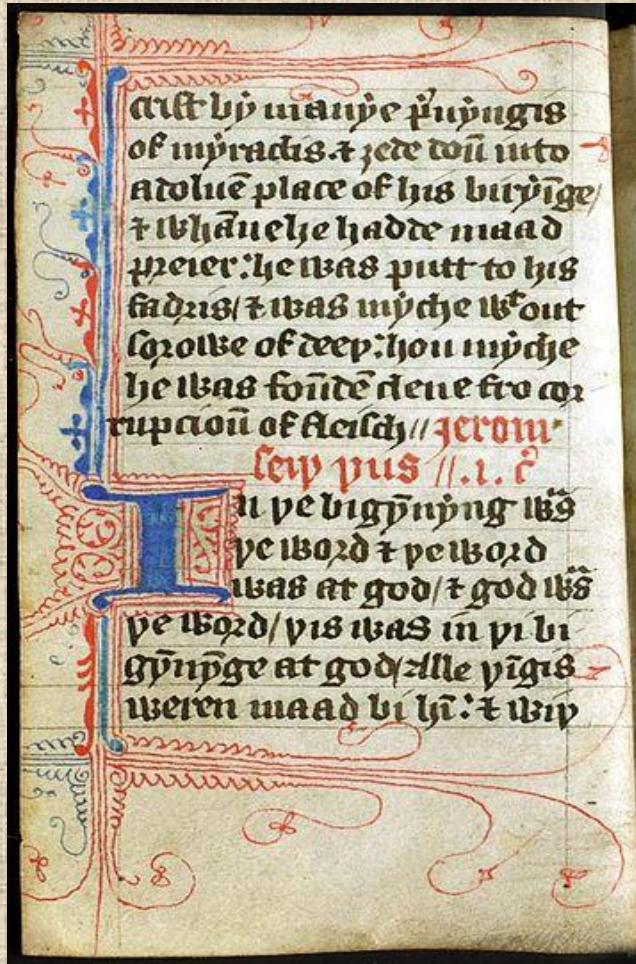 crist bẏ manẏe p̉uẏngis
of mẏraclis. ⁊ ȝede doū in to
a doluē place of his biriẏ̄ge/
⁊ whāne he hadde maad
preier: he was putt to his
fadris/ ⁊ was mẏche wᵗout
sorowe of deeþ: hou mẏche
he was foūdē clene fro cor
rupcioū of fleisch// Jerom
seiþ þus //.1. c̊
In þe bigẏ̄nẏng wᵃs
þe word ⁊ þe word
was at god/ ⁊ god wᵃs
þe word/ þis was in þi bi
gẏ̄nẏ̄ge at god/ alle þīgis
weren maad bi hī: ⁊ wiþ